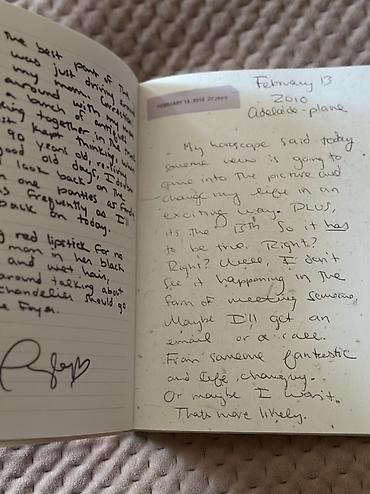 The best part of the
was just driving
my mom
around with my
a bunch of
together in the
kept thinking when
90 years old, reliving
good old days, I
look back on the
in one
as frequently as I'll
back on today.
red lipstick for no
man in her black
and wet hair,
around talking about
chandelier should go
the Foyer.
FEBRUARY 13, 2010 20 years
February 13
2010
Adelaide-plane
My horoscope said today
someone new is going to
come into the picture and
change my life in an
exciting way. PLUS,
its the 13th so it has
to be true. Right?
Right? Well, I don't
see it happening in the
form of meeting someone,
Maybe I'll get an
email or a call.
From someone fantastic
and life changing.
Or maybe I won't.
Thats more likely.